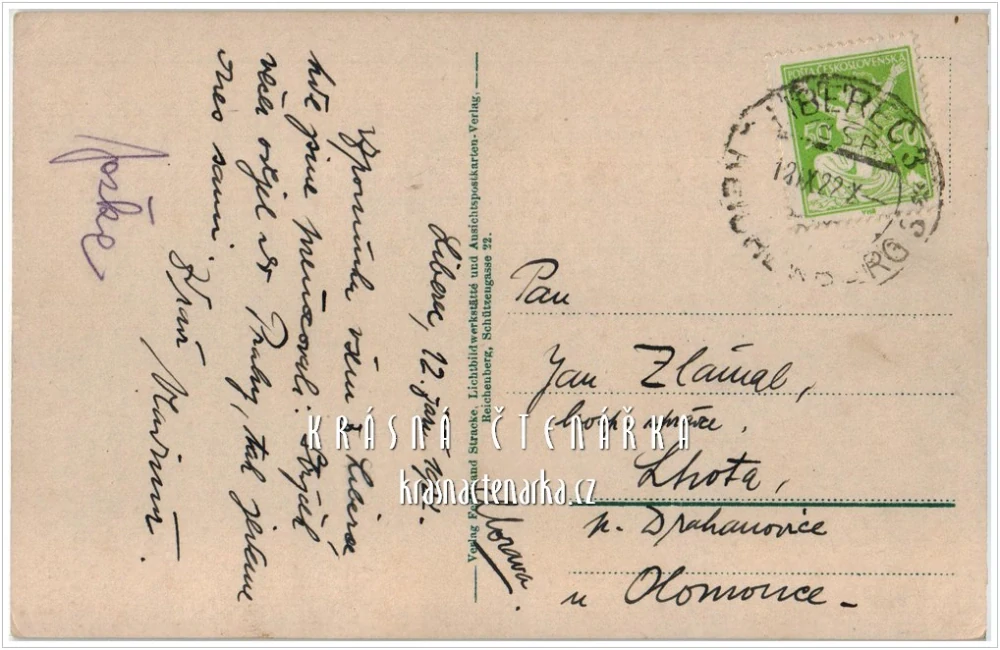 Liberec, 12.
Vzpomínku všem z Liberce
kde jsme přenocovali. Strýček
včera odjel do Prahy, tak jsme
dnes sami.
Zdraví
Joške
Verlag Ferdinand Stracke, Lichtbildwerkstätte und Ansichtspostkarten-Verlag,
Reichenberg, Schützengasse 22.
POŠTA ČESKOSLOVENSKÁ
50 50
LIBEREC 3
12.IX.22.X
REICHENBERG 3
Pan
Jan Zlámal,
Lhota,
p. Drahanovice
u Olomouce -
Morava.
KRÁSNÁ ČTENÁŘKA
krasnactenarka.cz